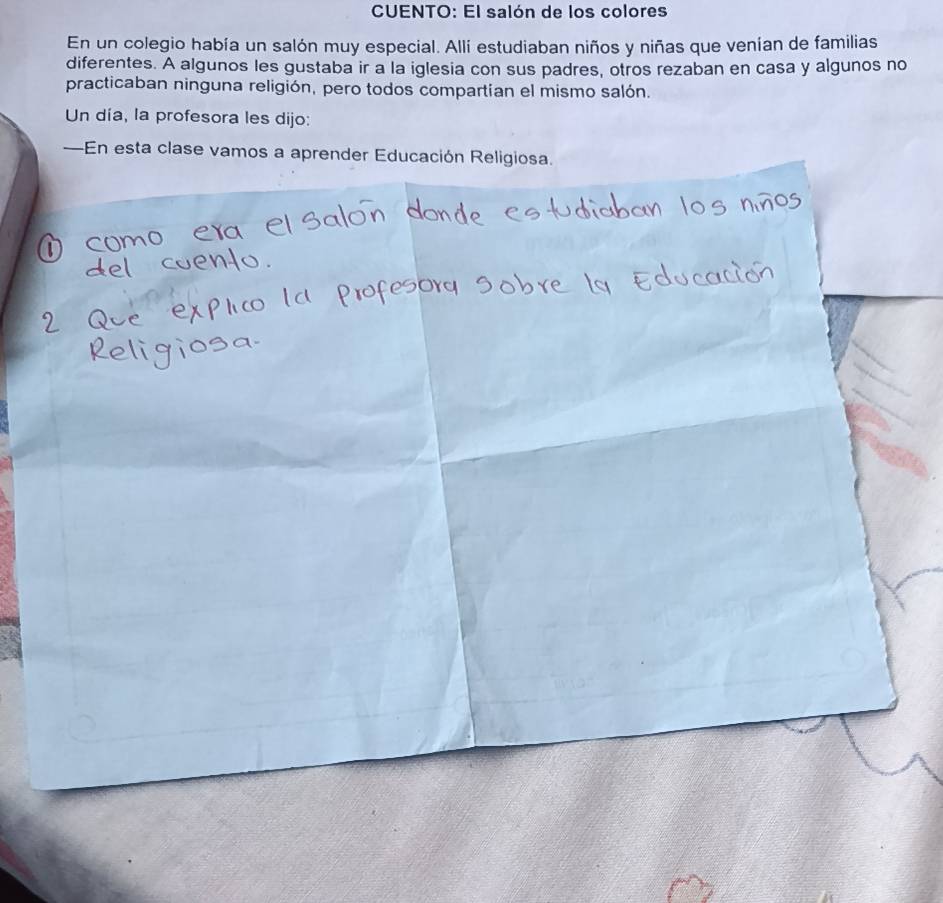 CUENTO: El salón de los colores
En un colegio había un salón muy especial. Allí estudiaban niños y niñas que venían de familias
diferentes. A algunos les gustaba ir a la iglesia con sus padres, otros rezaban en casa y algunos no
practicaban ninguna religión, pero todos compartían el mismo salón.
Un día, la profesora les dijo:
—En esta clase vamos a aprender Educación Religiosa.
① como era el salón donde estudiaban los niños
del cuento.
2 Qué explico la Profesora sobre la Educación
Religiosa.